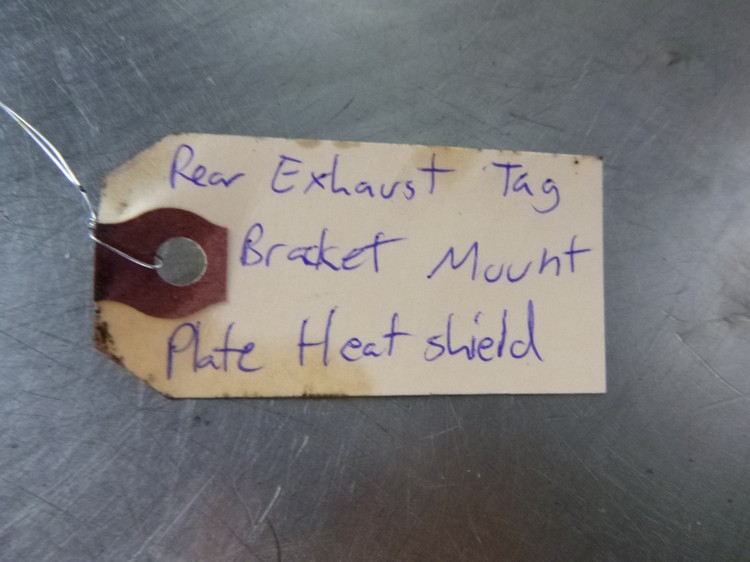 Rear Exhaust Tag
Bracket Mount
Plate Heat shield